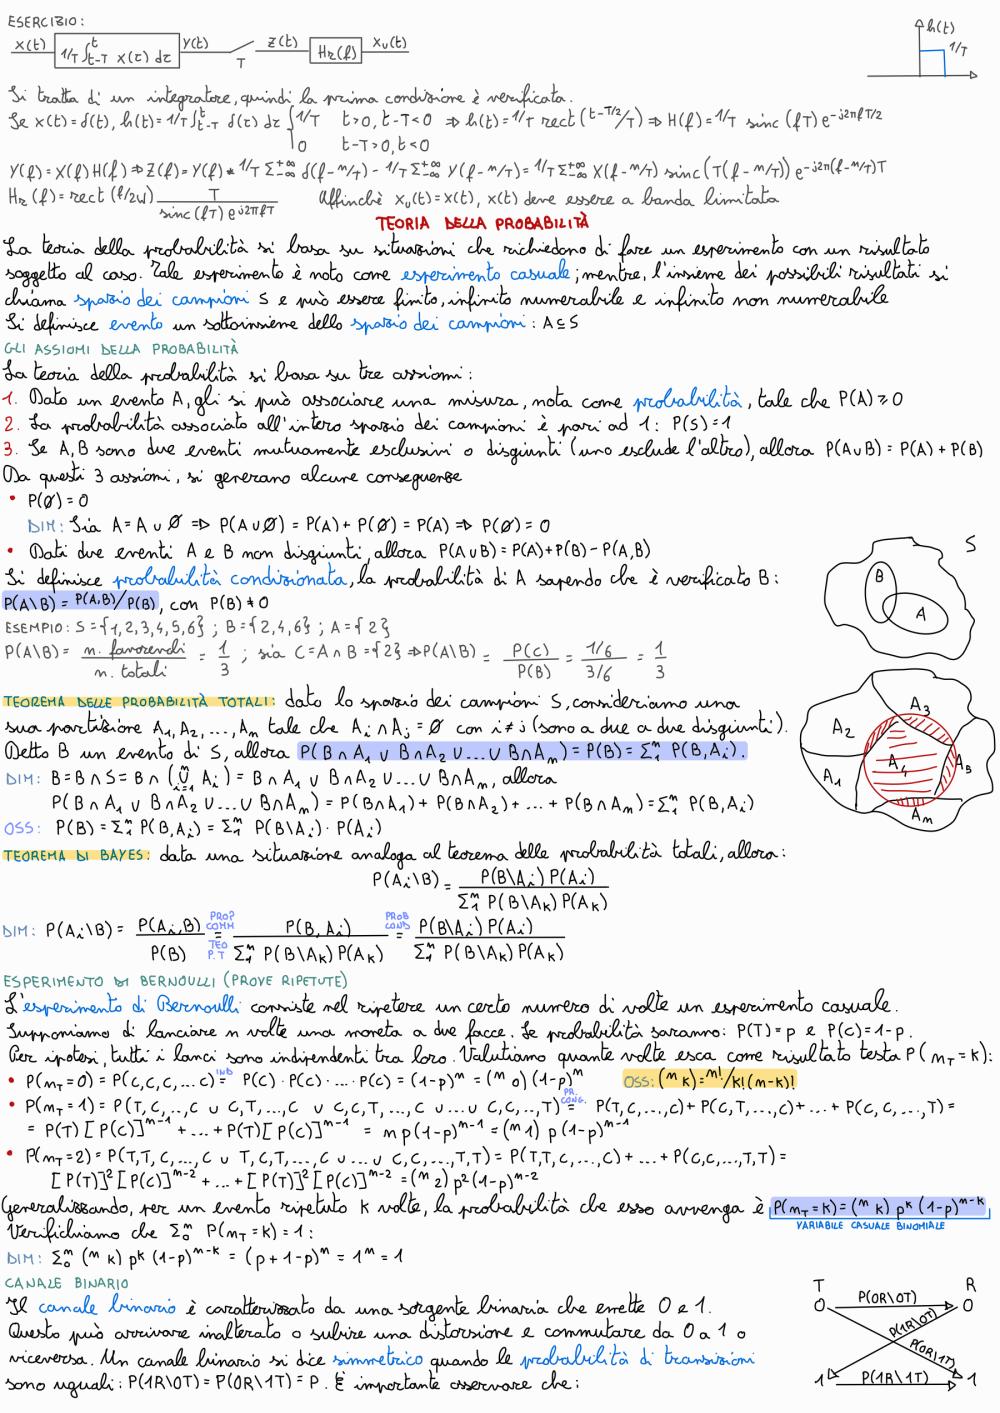 ESERCIZIO:
x(t) 1/T ∫t-T^t x(τ) dτ y(t) T z(t) Hr(f) xu(t)
h(t)
1/T
Si tratta di un integratore, quindi la prima condizione è verificata.
Se x(t) = δ(t), h(t) = 1/T ∫t-T^t δ(τ) dτ { 1/T t>0, t-T<0 ⇒ h(t) = 1/T rect (t-T/2/T) ⇒ H(f) = 1/T sinc (fT) e^-j2πfT/2
0 t-T>0, t<0
Y(f) = X(f) H(f) ⇒ Z(f) = Y(f) * 1/T Σ-∞^+∞ δ(f-m/T) - 1/T Σ-∞^+∞ Y(f-m/T) = 1/T Σ-∞^+∞ X(f-m/T) sinc(T(f-m/T)) e^-j2π(f-m/T)T
Hr(f) = rect (f/2W) T / sinc(fT) e^j2πfT Affinchè xu(t) = x(t), x(t) deve essere a banda limitata
TEORIA DELLA PROBABILITÀ
La teoria della probabilità si basa su situazioni che richiedono di fare un esperimento con un risultato
soggetto al caso. Tale esperimento è noto come esperimento casuale; mentre, l'insieme dei possibili risultati si
chiama spazio dei campioni S e può essere finito, infinito numerabile e infinito non numerabile
Si definisce evento un sottoinsieme dello spazio dei campioni: A⊆S
GLI ASSIOMI DELLA PROBABILITÀ
La teoria della probabilità si basa su tre assiomi:
1. Dato un evento A, gli si può associare una misura, nota come probabilità, tale che P(A) ≥ 0
2. La probabilità associato all'intero spazio dei campioni è pari ad 1: P(S) = 1
3. Se A, B sono due eventi mutuamente esclusivi o disgiunti (uno esclude l'altro), allora P(A∪B) = P(A) + P(B)
Da questi 3 assiomi, si generano alcune conseguenze
• P(∅) = 0
DIM: Sia A = A ∪ ∅ ⇒ P(A∪∅) = P(A) + P(∅) = P(A) ⇒ P(∅) = 0
• Dati due eventi A e B non disgiunti, allora P(A∪B) = P(A)+P(B) - P(A,B)
Si definisce probabilità condizionata, la probabilità di A sapendo che è verificato B:
P(A\B) = P(A,B)/P(B), con P(B) ≠ 0
S
B
A
ESEMPIO: S = {1,2,3,4,5,6} ; B = {2,4,6} ; A = {2}
P(A\B) = n. favorendi / n. totali = 1/3 ; sia C = A ∩ B = {2} ⇒ P(A\B) = P(C)/P(B) = 1/6 / 3/6 = 1/3
TEOREMA DELLE PROBABILITÀ TOTALI: dato lo spazio dei campioni S, consideriamo una
sua partizione A1, A2, ..., Am tale che Ai ∩ Aj = ∅ con i ≠ j (sono a due a due disgiunti).
Detto B un evento di S, allora P(B ∩ A1 ∪ B∩A2 ∪ ... ∪ B∩Am) = P(B) = Σ1^m P(B,Ai).
A1 A2 A3 A4 AB Am
DIM: B = B ∩ S = B ∩ (∪i=1^m Ai) = B ∩ A1 ∪ B∩A2 ∪ ... ∪ B∩Am, allora
P(B ∩ A1 ∪ B∩A2 ∪ ... ∪ B∩Am) = P(B∩A1) + P(B∩A2) + ... + P(B∩Am) = Σ1^m P(B,Ai)
OSS: P(B) = Σ1^m P(B,Ai) = Σ1^m P(B\Ai) · P(Ai)
TEOREMA DI BAYES: data una situazione analoga al teorema delle probabilità totali, allora:
P(Ai\B) = P(B\Ai) P(Ai) / Σ1^m P(B\Ak) P(Ak)
DIM: P(Ai\B) = P(Ai,B) / P(B) = PROP COMM TEO P.T P(B,Ai) / Σ1^m P(B\Ak) P(Ak) = PROB COND P(B\Ai) P(Ai) / Σ1^m P(B\Ak) P(Ak)
ESPERIMENTO DI BERNOULLI (PROVE RIPETUTE)
L'esperimento di Bernoulli consiste nel ripetere un certo numero di volte un esperimento casuale.
Supponiamo di lanciare n volte una moneta a due facce. Le probabilità saranno: P(T) = p e P(C) = 1-p.
Per ipotesi, tutti i lanci sono indipendenti tra loro. Valutiamo quante volte esca come risultato testa P(mT = k):
• P(mT = 0) = P(C,C,C,...C) = IND P(C) · P(C) · ... · P(C) = (1-p)^m = (m 0) (1-p)^m OSS: (m k) = m!/k!(m-k)!
• P(mT = 1) = P(T,C,..,C ∪ C,T,...,C ∪ C,C,T,...,C ∪ ... ∪ C,C,..,T) = PR. CONG. P(T,C,...,C) + P(C,T,...,C) + ... + P(C,C,...,T) =
= P(T) [P(C)]^m-1 + ... + P(T) [P(C)]^m-1 = m p (1-p)^m-1 = (m 1) p (1-p)^m-1
• P(mT = 2) = P(T,T,C,...,C ∪ T,C,T,...,C ∪ ... ∪ C,C,...,T,T) = P(T,T,C,...,C) + ... + P(C,C,...,T,T) =
[P(T)]^2 [P(C)]^m-2 + ... + [P(T)]^2 [P(C)]^m-2 = (m 2) p^2 (1-p)^m-2
Generalizzando, per un evento ripetuto k volte, la probabilità che esso avvenga è P(mT = k) = (m k) p^k (1-p)^m-k
VARIABILE CASUALE BINOMIALE
Verifichiamo che Σ0^m P(mT = k) = 1:
DIM: Σ0^m (m k) p^k (1-p)^m-k = (p + 1-p)^m = 1^m = 1
CANALE BINARIO
Il canale binario è caratterizzato da una sorgente binaria che emette 0 e 1.
Questo può arrivare inalterato o subire una distorsione e commutare da 0 a 1 o
viceversa. Un canale binario si dice simmetrico quando le probabilità di transizioni
sono uguali: P(1R\0T) = P(0R\1T) = P. È importante osservare che:
T R
0 P(0R\0T) 0
P(1R\0T)
P(0R\1T)
1 P(1R\1T) 1